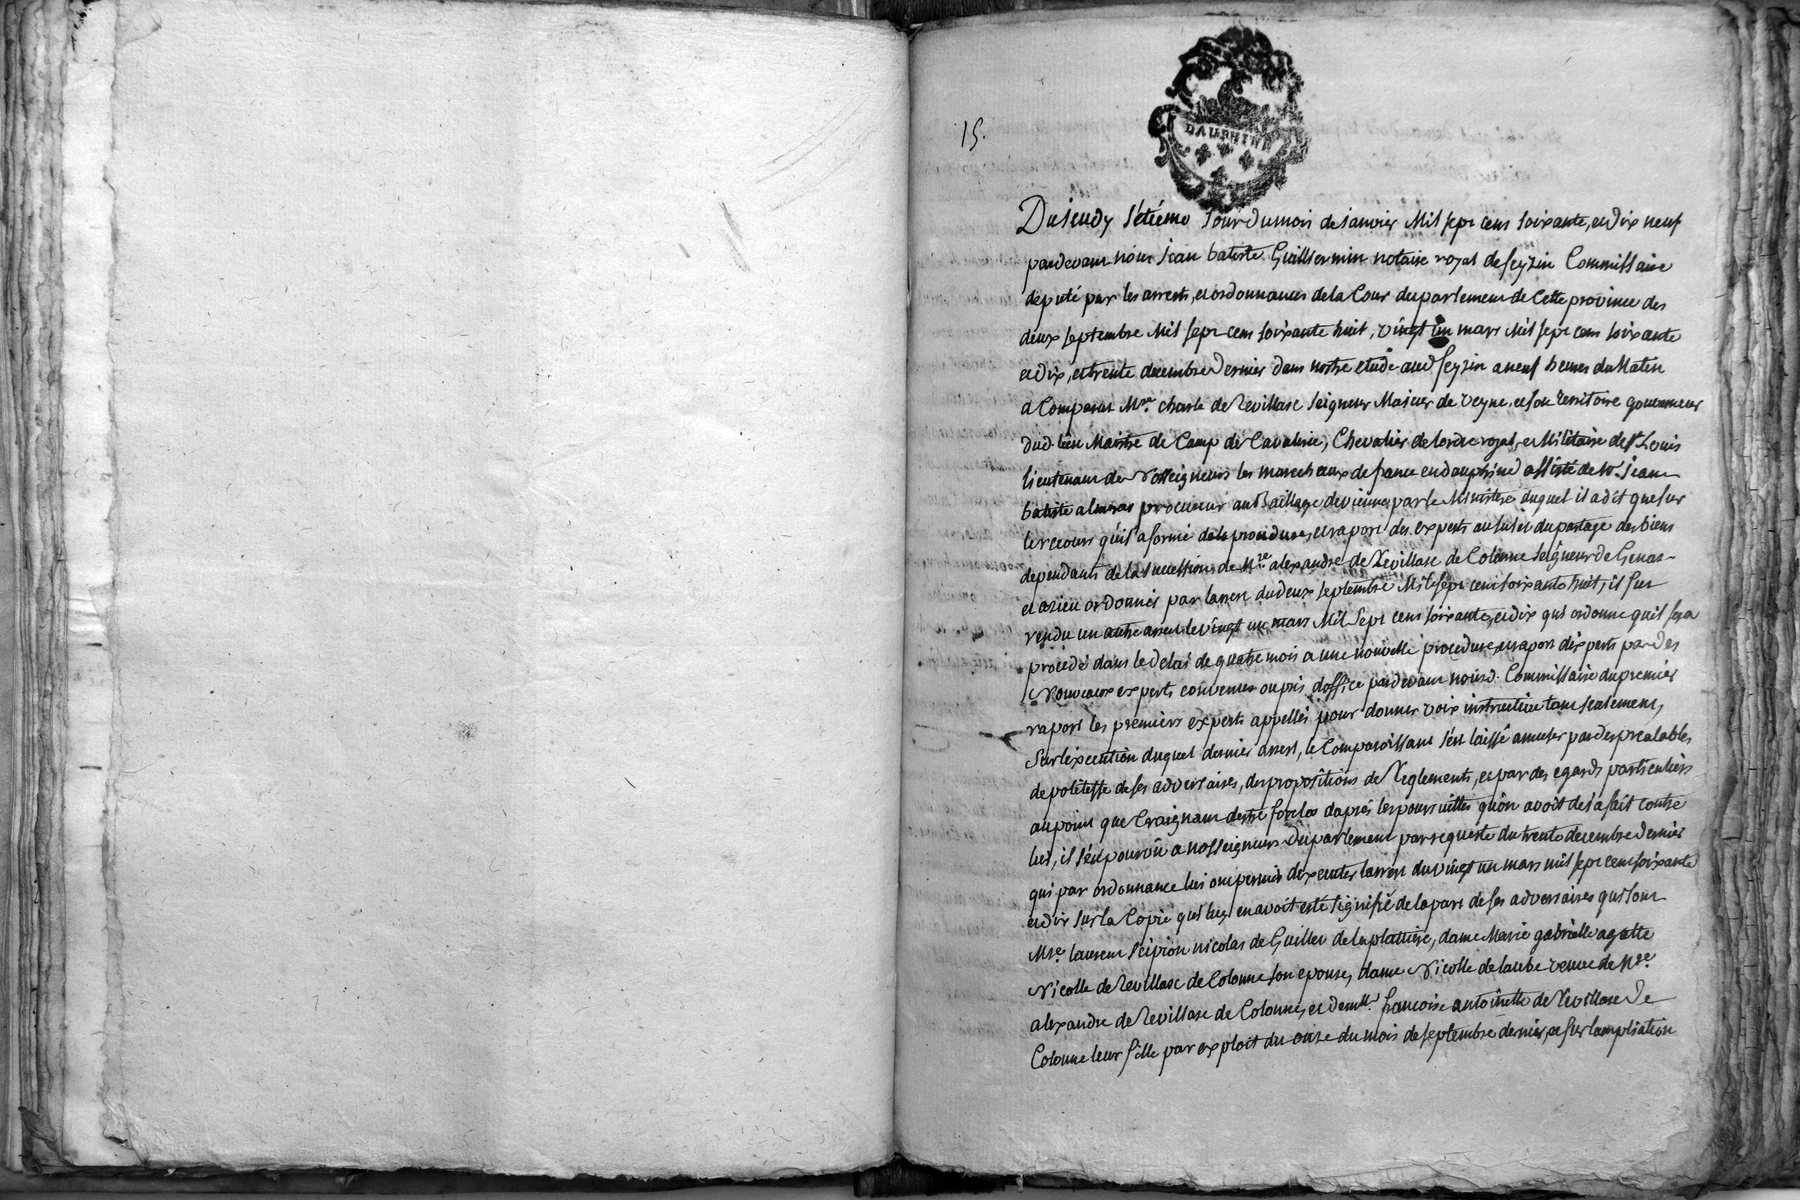 15.
DAUPHINE
Du jeudy sétiéme jour du mois de janvier mil sept cens soixante, et dix neuf
pardevant nous jean batiste Guilliermin notaire royal de feyzin Commissaire
deputé par les arrests, et ordonnances de la Cour du parlement de Cette province des
deux septembre mil sept cens soixante huit, vingt un mars mil sept cens soixante
et dix, et trente decembre dernier dans nostre etude aud feyzin a neuf heures du Matin
a Comparut Mre. charle de Revillasc seigneur Majeur de veyne, et son territoire gouverneur
dud lieu Maistre de Camp de Cavalerie, Chevalier de lordre royal, et Militaire de St Louis
lieutenant de Nosseigneurs les marechaux de france en dauphiné assisté de Me jean
batiste almeras procureur au Bailliage de vienne, par le Ministere duquel il a dit que sur
le recours qu'il a formé de la procedure, et raport des experts au sujet du partage des biens
dependants de la succession de Mre alexandre de Revillasc de Colonne seigneur de Genas
et azieu ordonnés par larrest du deux septembre Mil sept cens soixante huit, il fut
rendu un autre arrest le vingt un mars Mil sept cens soixante, et dix qui ordonne quil sera
procedé dans le delai de quatre mois a une nouvelle procedure, et raport dexperts par des
Nouveaux experts convenus ou pris doffice pardevant nousd. Commissaire du premier
raport les premiers experts appellés pour donner voix instructive tant seulement,
Sur lexecution duquel dernier arrest, le Comparoissant s'est laissé amuser par des prealables
de politesse de ses adversaires, des propositions de Reglements, et par des egards particuliers
au point que Craignant destre forclos daprès les poursuittes qu'on avoit desja fait contre
lui, il s'est pourvû a nosseigneurs du parlement par requeste du trente decembre dernier
qui par ordonnance lui ont permis dexecuter larrest du vingt un mars mil sept cens soixante
et dix sur la Copie qui luy en avoit esté signifié de la part de ses adversaires qui sont
Mre. laurent scipion nicolas de Guillet de la platiere, dame Marie gabrielle agatte
Nicolle de Revillasc de Colonne son epouse, dame Nicolle de laube veuve de Mre.
alexandre de Revillasc de Colonne, et demlle. francoise antoinette de Revillasc de
Colonne leur fille par exploit du onze du mois de septembre dernier, et sur lampliation